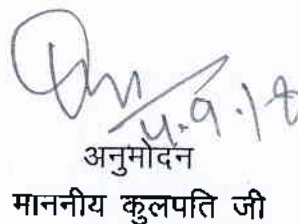 4.9.18
अनुमोदन
माननीय कुलपति जी